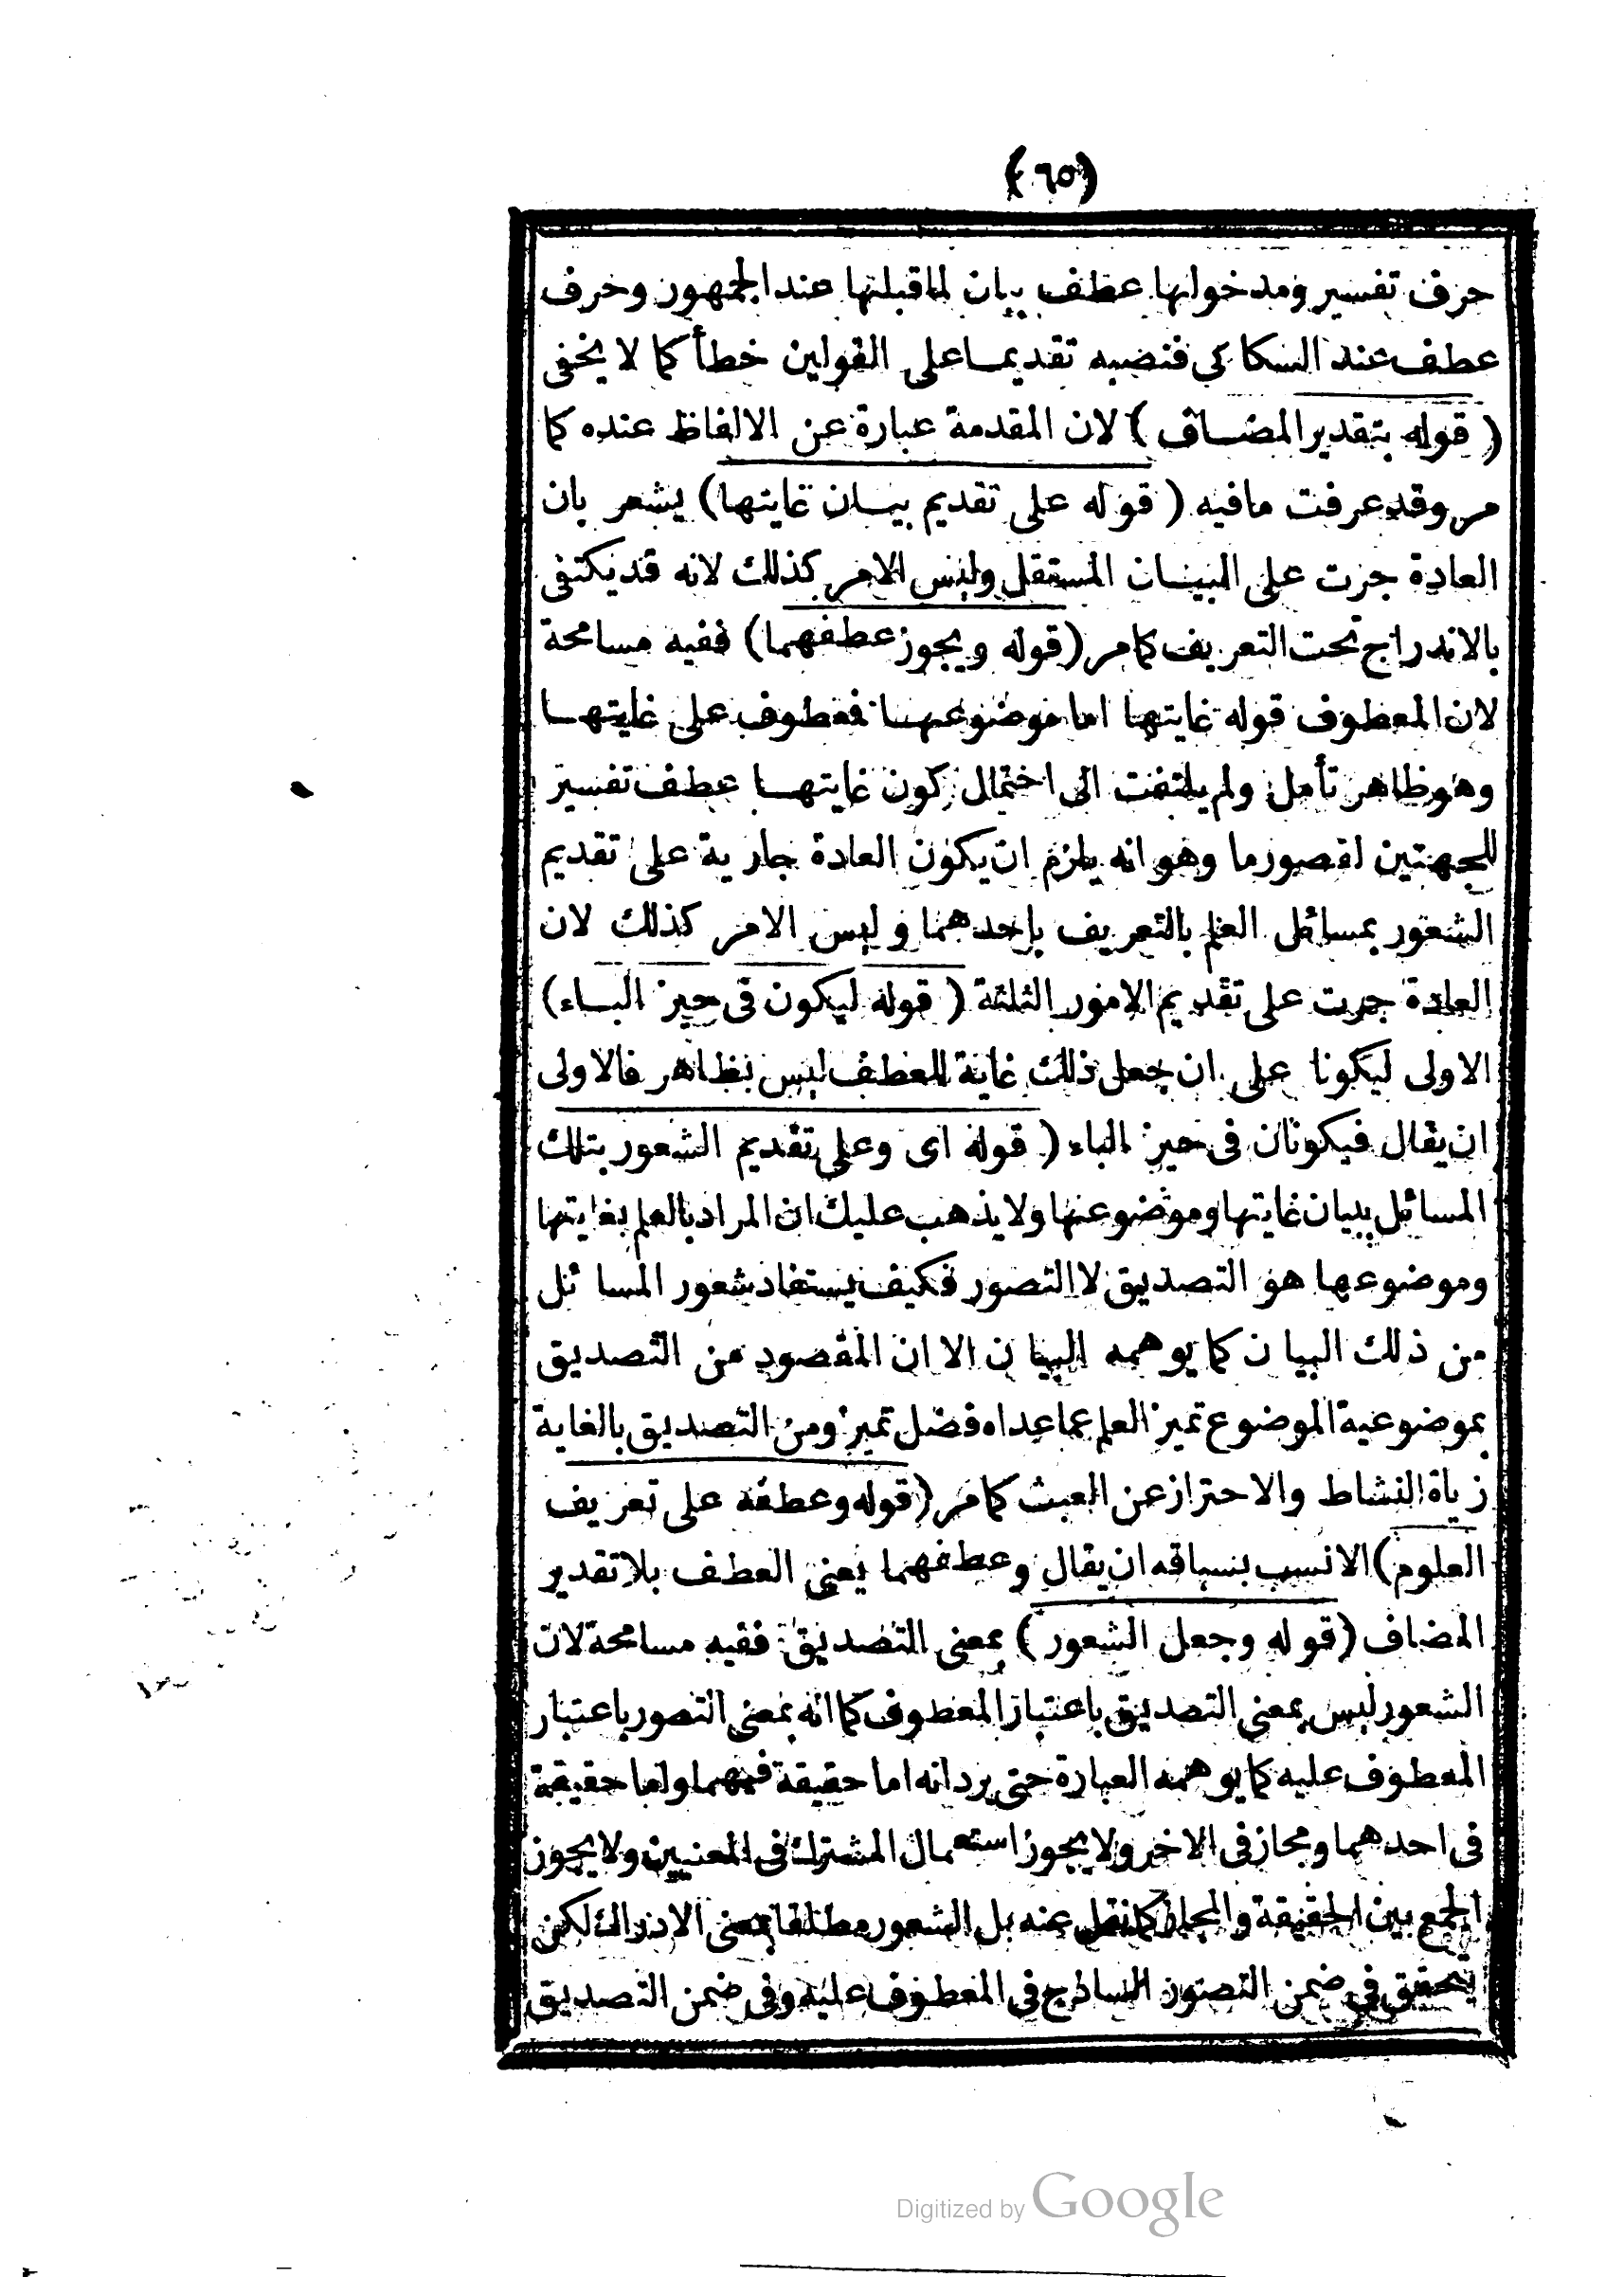 (٦٥)
حرف تفسير ومدخولها عطف بيان لما قبلها عند الجمهور وحرف
عطف عند السكاكي فنصبه تقديما على القولين خطأ كما لا يخفى
( قوله بتقدير المضاف ) لان المقدمة عبارة عن الالفاظ عنده كما
مر وقد عرفت ما فيه ( قوله على تقديم بيان غايتها) يشعر بان
العادة جرت على البيان المستقل وليس الامر كذلك لانه قد يكتفى
بالاندراج تحت التعريف كما مر (قوله ويجوز عطفهما) ففيه مسامحة
لان المعطوف قوله غايتها اما موضوعها فمعطوف على غايتها
وهو ظاهر تأمل ولم يلتفت الى احتمال كون غايتها عطف تفسير
للجهتين لقصور ما وهو انه يلزم ان يكون العادة جارية على تقديم
الشعور بمسائل العلم بالتعريف باحدهما وليس الامر كذلك لان
العادة جرت على تقديم الامور الثلثة ( قوله ليكون فى حيز الباء)
الاولى ليكونا على ان جعل ذلك غاية للعطف ليس بظاهر فالاولى
ان يقال فيكونان فى حيز الباء ( قوله اى وعلى تقديم الشعور بتلك
المسائل ببيان غايتها وموضوعها ولا يذهب عليك ان المراد بالعلم بغايتها
وموضوعها هو التصديق لا التصور فكيف يستفاد شعور المسائل
من ذلك البيان كما يوهمه البيان الا ان المقصود من التصديق
بموضوعية الموضوع تميز العلم عما عداه فضل تميز ومن التصديق بالغاية
زياة النشاط والاحتراز عن العبث كما مر (قوله وعطفه على تعريف
العلوم) الانسب بسباقه ان يقال وعطفهما يعنى العطف بلا تقدير
المضاف (قوله وجعل الشعور ) بمعنى التصديق ففيه مسامحة لان
الشعور ليس بمعنى التصديق باعتبار المعطوف كما انه بمعنى التصور باعتبار
المعطوف عليه كما يوهمه العبارة حتى يرد انه اما حقيقة فيهما واما حقيقة
فى احدهما ومجاز فى الاخر ولا يجوز استعمال المشترك فى المعنيين ولا يجوز
الجمع بين الحقيقة والمجاز كما نقل عنه بل الشعور مطلقا بمعنى الادراك لكن
يتحقق فى ضمن التصور الساذج فى المعطوف عليه وفى ضمن التصديق
Digitized by Google